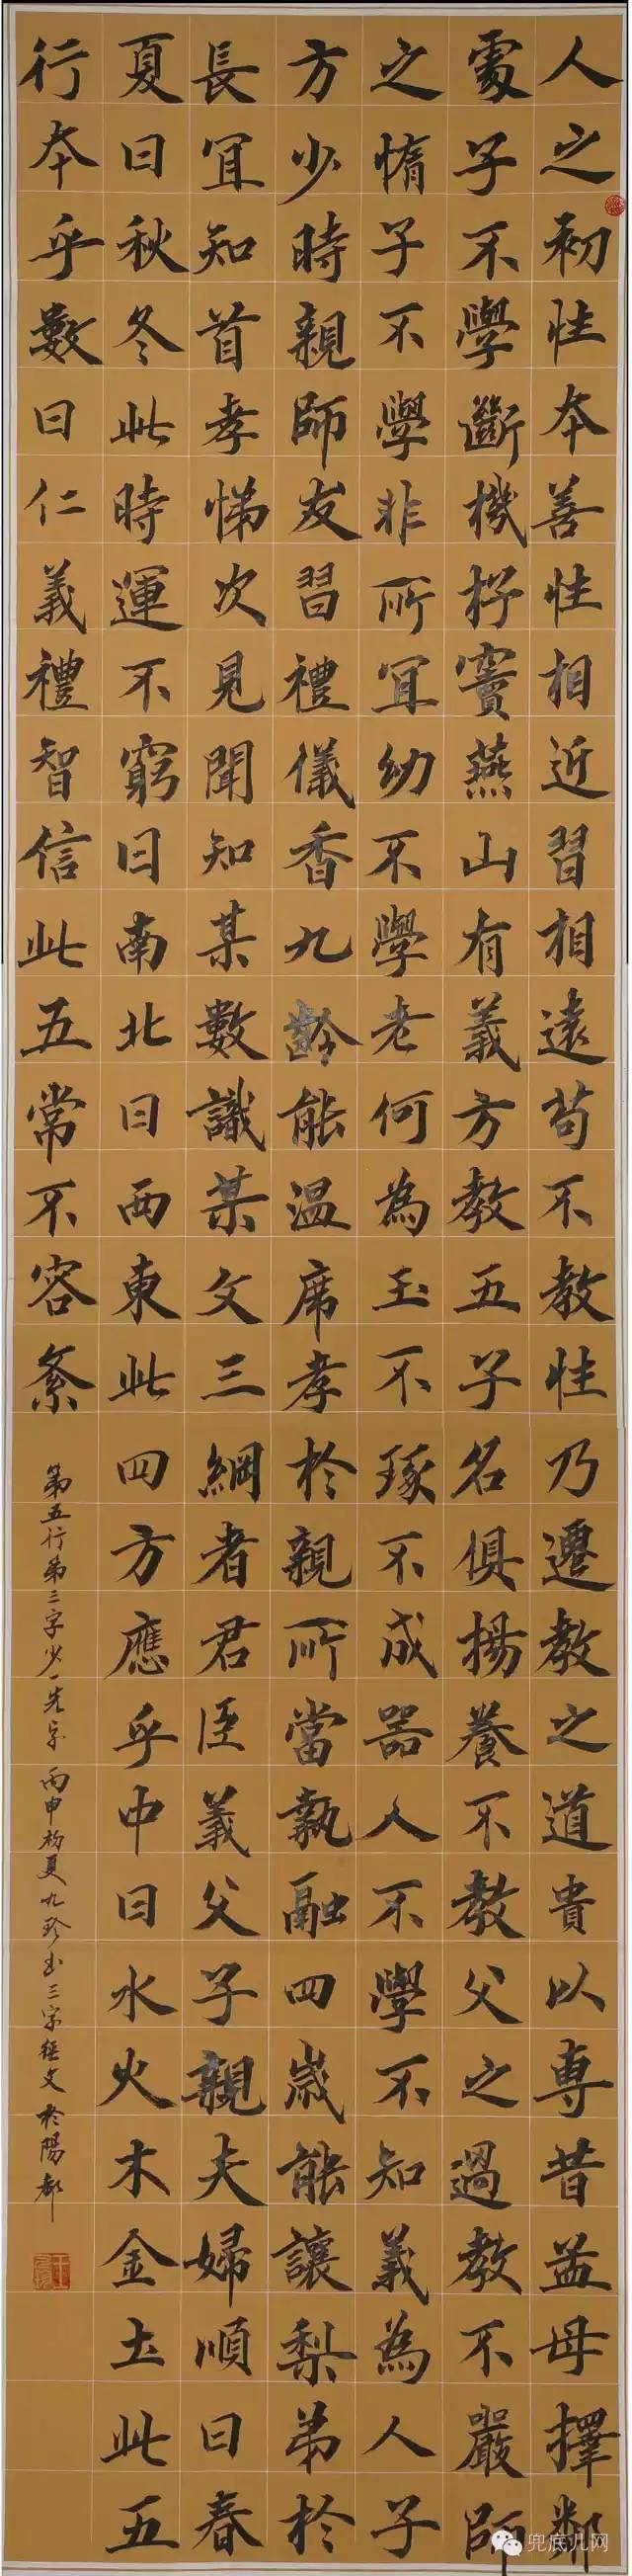 人之初性本善性相近習相遠苟不教性乃遷教之道貴以專昔孟母擇鄰
處子不學斷機杼竇燕山有義方教五子名俱揚養不教父之過教不嚴師
之惰子不學非所宜幼不學老何為玉不琢不成器人不學不知義為人子
方少時親師友習禮儀香九齡能温席孝於親所當執融四歲能讓梨弟於
長宜知首孝悌次見聞知某數識某文三綱者君臣義父子親夫婦順曰春
夏曰秋冬此時運不窮曰南北曰西東此四方應乎中曰水火木金土此五
行本乎數曰仁義禮智信此五常不容紊
第五行第三字少一先字 丙申初夏九珍書三字經文於陽都
兜底儿网